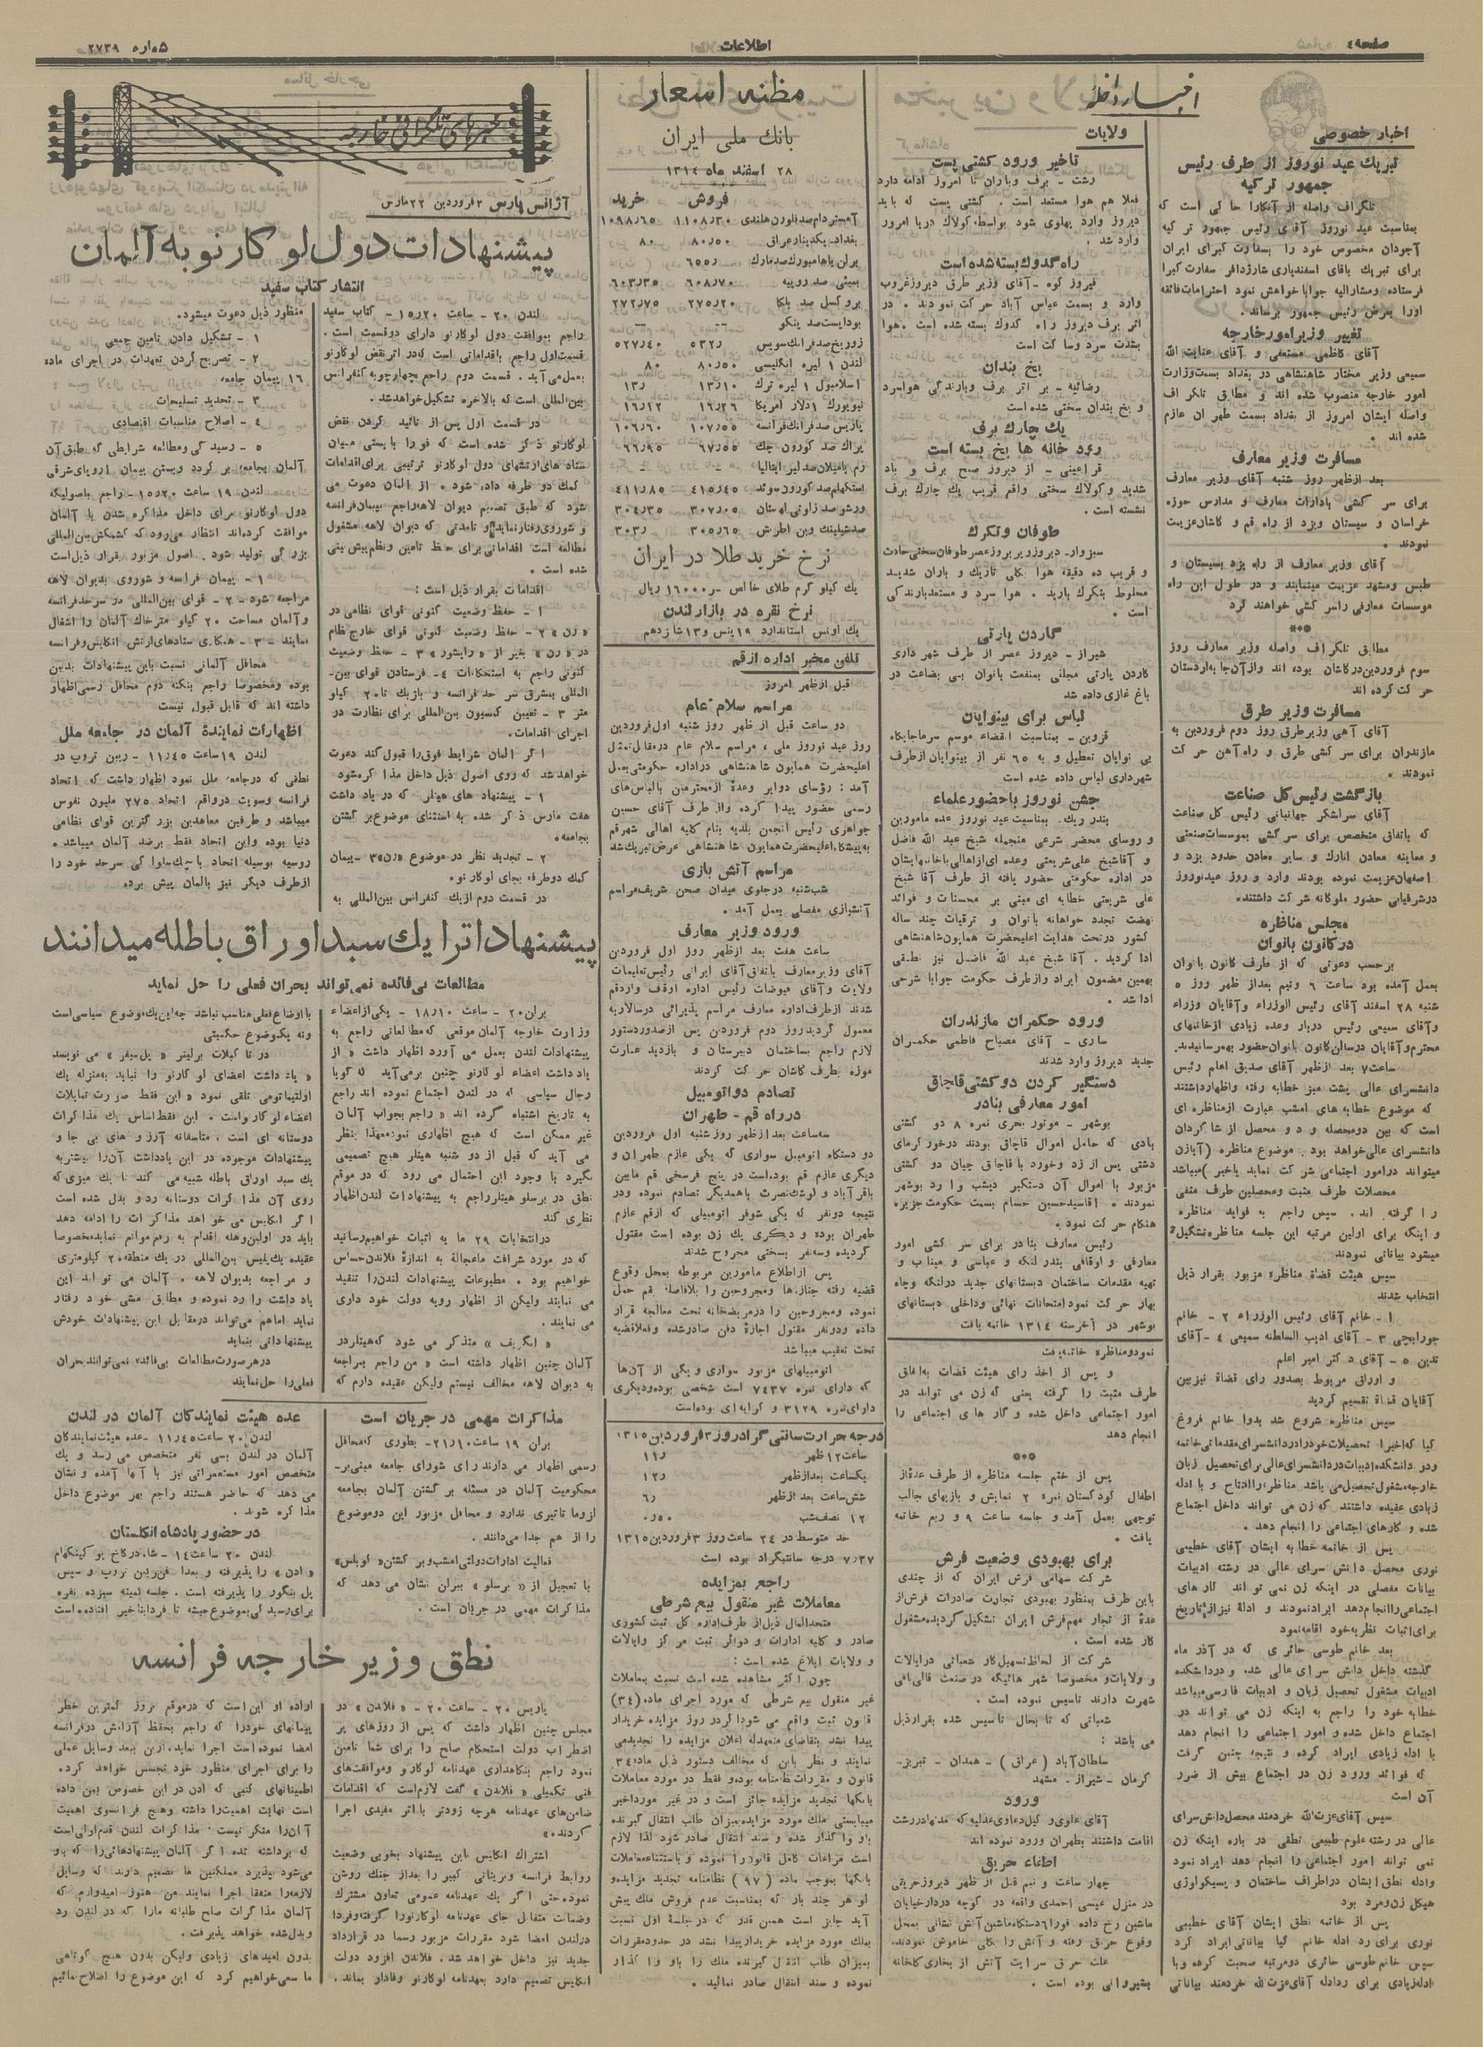 صفحه ٤
اطلاعات
شماره ٢٧٣٩
اخبار داخله
اخبار خصوصی
تبریك عید نوروز از طرف رئیس
جمهور ترکیه
تلگراف واصله از آنکارا حاکی است که
بمناسبت عید نوروز آقای رئیس جمهور ترکیه
آجودان مخصوص خود را بسفارت کبرای ایران
برای تبریك باقای اسفندیاری شارژدافر سفارت کبرا
فرستاده ومشارالیه جوابا خواهش نمود احترامات فائقه
اورا بعرض رئیس جمهور برساند.
تغییر وزیر امور خارجه
آقای کاظمی مستعفی و آقای عنایت الله
سمیعی وزیر مختار شاهنشاهی در بغداد بسمت وزارت
امور خارجه منصوب شده اند و مطابق تلگراف
واصله ایشان امروز از بغداد بسمت طهران عازم
شده اند .
مسافرت وزیر معارف
بعد ازظهر روز شنبه آقای وزیر معارف
برای سر کشی بادارات معارف و مدارس حوزه
خراسان و سیستان ویزد از راه قم و کاشان عزیمت
نمودند .
آقای وزیر معارف از راه یزد بسیستان و
طبس ومشهد عزیمت مینمایند و در طول این راه
موسسات معارفی راسر کشی خواهند کرد
***
مطابق تلگراف واصله وزیر معارف روز
سوم فروردین درکاشان بوده اند وازآن جا به اردستان
حرکت کرده اند
مسافرت وزیر طرق
آقای آهی وزیر طرق روز دوم فروردین به
مازندران برای سر کشی طرق و راه آهن حرکت
نمودند .
بازگشت رئیس کل صناعت
آقای سرلشگر جهانبانی رئیس کل صناعت
که باتفاق متخصص برای سرکشی بموسسات صنعتی
و معاینه معادن انارك و سایر معادن حدود یزد و
اصفهان عزیمت نموده بودند وارد و روز عید نوروز
درشرفیابی حضور ملوکانه شرکت داشتند.
مجلس مناظره
در کانون بانوان
برحسب دعوتی که از طرف کانون بانوان
بعمل آمده بود ساعت ٦ ونیم بعد از ظهر روز ٥
شنبه ٢٨ اسفند آقای رئیس الوزراء وآقایان وزراء
وآقای سمیعی رئیس دربار وعده زیادی ازخانمهای
محترم وآقایان درسالن کانون بانوان حضور بهم رسانیدند.
ساعت ٧ بعد ازظهر آقای صدیق اعلم رئیس
دانشسرای عالی پشت میز خطابه رفته واظهار داشتند
که موضوع خطابه های امشب عبارت ازمناظره ای
است که بین دومحصله و دو محصل از شاگردان
دانشسرای عالی خواهد بود . موضوع مناظره (آیازن
میتواند درامور اجتماعی شرکت نماید یاخیر ) میباشد
محصلات طرف مثبت ومحصلین طرف منفی
را گرفته اند. سپس راجع به فواید مناظره
و اینکه برای اولین مرتبه این جلسه مناظره تشکیل
میشود بیاناتی نمودند
سپس هیئت قضاة مناظرهٔ مزبور بقرار ذیل
انتخاب شدند
١ - خانم آقای رئیس الوزراء ٢ - خانم
جورابچی ٣ - آقای ادیب السلطنه سمیعی ٤ - آقای
تدین ٥ - آقای دکتر امیر اعلم
و اوراق مربوط بصدور رای قضاة نیز بین
آقایان قضاة تقسیم گردید
سپس مناظره شروع شد بدوا خانم فروغ
کیا که اخیرا تحصیلات خود را در دانشسرای مقدماتی خاتمه
ودر دانشکده ادبیات در دانشسرای عالی برای تحصیل زبان
خارجه مشغول تحصیل می باشد مناظره را افتتاح و با ادله
زیادی عقیده داشتند که زن می تواند داخل اجتماع
شده و کارهای اجتماعی را انجام دهد .
پس از خاتمه خطابه ایشان آقای خطیبی
نوری محصل دانش سرای عالی در رشته ادبیات
بیانات مفصلی در اینکه زن نمی تواند کار های
اجتماعی را انجام دهد ایراد نمودند و ادلهٔ نیز از تاریخ
برای اثبات نظریه خود اقامه نمود
بعد خانم طوسی حائری که در آذر ماه
گذشته داخل دانش سرای عالی شده و در دانشکده
ادبیات مشغول تحصیل زبان و ادبیات فارسی میباشد
خطابه خود را راجع به اینکه زن می تواند در
اجتماع داخل شده و امور اجتماعی را انجام دهد
با ادله زیادی ایراد کرده و نتیجه چنین گرفت
که فواید ورود زن در اجتماع بیش از ضرر
آن است
سپس آقای عزت الله خردمند محصل دانش سرای
عالی در رشته علوم طبیعی نطقی در باره اینکه زن
نمی تواند امور اجتماعی را انجام دهد ایراد نمود
وادله نطق ایشان در اطراف ساختمان و پسیکولوژی
هیکل زن ومرد بود
پس از خاتمه نطق ایشان آقای خطیبی
نوری برای رد ادله خانم کیا بیاناتی ایراد کرد
سپس خانم طوسی حائری دومرتبه صحبت کرده وبا
ادله زیادی برای رد ادله آقای عزت الله خردمند بیاناتی
ولایات
تاخیر ورود کشتی پست
رشت - برف وباران تا امروز ادامه دارد
فعلا هم هوا مستعد است . کشتی پست که باید
دیروز وارد پهلوی شود بواسطه کولاك دریا امروز
وارد شد .
راه گدوك بسته شده است
فیروز کوه - آقای وزیر طرق دیروز غروب
وارد و بسمت عباس آباد حرکت نمودند . در
اثر برف دیروز راه گدوك بسته شده است . هوا
بشدت سرد وساکت است
یخ بندان
رضائیه - بر اثر برف وبارندگی هوا سرد
و یخ بندان سختی شده است
یك چارك برف
رود خانه ها یخ بسته است
قراعینی - از دیروز صبح برف و باد
شدید و کولاك سختی واقع قریب یك چارك برف
نشسته است .
طوفان وتگرك
سبزوار- دیروز زیر بروز عصر طوفان سختی حادث
و قریب ده دقیقه هوا بکلی تاریك و باران شدید
مخلوط بتگرك بارید . هوا سرد و مستعد بارندگی
است .
گاردن پارتی
شیراز - دیروز عصر از طرف شهرداری
گاردن پارتی مجللی بمنفعت بانوان بی بضاعت در
باغ غازی داده شد
لباس برای بینوایان
قزوین - بمناسبت انقضاء موسم سرما جایگاه
بی نوایان تعطیل و به ٦٥ نفر از بینوایان ازطرف
شهرداری لباس داده شده است
جشن نوروز باحضور علماء
بندر ریك . بمناسبت عید نوروز عده مامورین
و روسای محضر شرعی منجمله شیخ عبد الله فاضل
و آقاشیخ علی شریعتی وعده ای ازاهالی باخانمهایشان
در اداره حکومتی حضور یافته از طرف آقا شیخ
علی شریعتی خطابه ای مبنی بر محسنات و فوائد
نهضت تجدد خواهانه بانوان و ترقیات چند ساله
کشور درتحت هدایت اعلیحضرت همایون شاهنشاهی
ادا گردید . آقا شیخ عبد الله فاضل نیز نطقی
بهمین مضمون ایراد وازطرف حکومت جوابا شرحی
ادا شد .
ورود حکمران مازندران
ساری - آقای مصباح فاطمی حکمران
جدید دیروز وارد شدند
دستگیر کردن دو کشتی قاچاق
امور معارفی بنادر
بوشهر - موتور بحری نمره ٨ دو کشتی
بادی که حامل اموال قاچاق بودند درخور کرمای
دشتی پس از زد وخورد با قاچاق چیان دو کشتی
مزبور با اموال آن دستگیر دیشب وارد بوشهر
نمودند . آقاسید حسین حسام بسمت حکومت جزیره
هنگام حرکت نمود .
رئیس معارف بنادر برای سر کشی امور
معارفی و اوقافی بندر لنگه و عباسی و میناب و
تهیه مقدمات ساختمان دبستانهای جدید درلنگه وچاه
بهار حرکت نمود امتحانات نهائی وداخلی دبستانهای
بوشهر در آخر سنه ١٣١٤ خاتمه یافت
نمود و مناظره خاتمه یافت
و پس از اخذ رای هیئت قضات به اتفاق
طرف مثبت را گرفته یعنی که زن می تواند در
امور اجتماعی داخل شده و کار های اجتماعی را
انجام دهد
***
پس از ختم جلسه مناظره از طرف عدهٔ از
اطفال کودکستان نمره ٢ نمایش و بازیهای جالب
توجهی بعمل آمد و جلسه ساعت ٩ و ربع خاتمه
یافت .
برای بهبودی وضعیت فرش
شرکت سهامی فرش ایران که از چندی
باین طرف بمنظور بهبودی تجارت صادرات فرش از
عدهٔ از تجار مهم فرش ایران تشکیل گردیده مشغول
کار شده است .
شرکت از لحاظ تسهیل کار شعباتی در ایالات
و ولایات و مخصوصا شهر هائیکه در صنعت قالی بافی
شهرت دارند تاسیس نموده است .
شعباتی که تا بحال تاسیس شده بقرار ذیل
می باشد :
سلطان آباد ( عراق ) - همدان - تبریز.
کرمان - شیراز - مشهد
ورود
آقای علوی و کیل دعاوی عدلیه که مدتها در رشت
اقامت داشتند بطهران ورود نموده اند
اطفاء حریق
چهار ساعت و نیم قبل از ظهر دیروز حریقی
در منزل عیسی احمدی واقعه در کوچه دردار خیابان
ماشین رخ داده . فورا ٢ دستگاه ماشین آتش نشانی بمحل
وقوع حریق رفته و آتش را بکلی خاموش نمودند.
علت حرق سرایت آتش از بخاری کتابخانه
بشیروانی بوده است .
مظنه اسعار
بانك ملی ایران
٢٨ اسفند ماه ١٣١٤
فروش خرید
آمستردام صد فلورن هلندی ١١٠٨٫٣٠ ١٠٩٨٫٦٥
بغداد . یکدینار عراق ٨٠٫٥٠ ٨٠
برلن یا هامبورك صد مارك ٦٥٥٫
بمبئی صد روپیه ٦٠٨٫٧٠ ٦٠٣٫٣٥
بروکسل صد بلگا ٢٧٥٫٢٠ ٢٧٢٫٧٥
بوداپست صد پنگو -- --
زوریخ صد فرانك سویس ٥٣٢٫ ٥٢٧٫٤٠
لندن ١ لیره انگلیسی ٨٠٫٥٠ ٨٠
اسلامبول ١ لیره ترك ١٣٫١٠ ١٣٫
نیویورك ١ دلار امریکا ١٦٫٢٦ ١٦٫١٢
پاریس صد فرانك فرانسه ١٠٧٫٥٥ ١٠٦٫٦٠
پراك صد کورون چك ٦٧٫٥٥ ٦٦٫٩٥
رم یا میلان صد لیر ایتالیا - -
استکهلم صد کورون سوئد ٤١٥٫٤٥ ٤١١٫٨٥
ورشو صد زلوتی لهستان ٣٠٧٫٠٥ ٣٠٤٫٣٥
صد شیلینك وین اطریش ٣٠٥٫٦٥ ٣٠٣٫
نرخ خرید طلا در ایران
یك کیلو گرم طلای خالص -ر ١٦٠٠٠ ریال
نرخ نقره در بازار لندن
یك اونس استاندارد ١٩ پنس و ١٣ شانزدهم
تلفن مخبر اداره از قم
قبل ازظهر امروز
مراسم سلام عام
دو ساعت قبل از ظهر روز شنبه اول فروردین
روز عید نوروز ملی ، مراسم سلام عام در مقابل تمثال
اعلیحضرت همایون شاهنشاهی دراداره حکومتی بعمل
آمد : رؤسای دوایر وعدهٔ از محترمین بالباسهای
رسمی حضور پیدا کرده واز طرف آقای حسین
جواهری رئیس انجمن بلدیه بنام کلیه اهالی شهر قم
به پیشگاه اعلیحضرت همایون شاهنشاهی عرض تبریك شد
مراسم آتش بازی
شب شنبه درجلوی میدان صحن شریف مراسم
آتشبازی مفصلی بعمل آمد .
ورود وزیر معارف
ساعت هفت بعد ازظهر روز اول فروردین
آقای وزیر معارف باتفاق آقای ایرانی رئیس تعلیمات
ولایات و آقای فیوضات رئیس اداره اوقاف وارد قم
شدند ازطرف اداره معارف مراسم پذیرائی درسالاریه
معمول گردید روز دوم فروردین پس از صدور دستور
لازم راجع بساختمان دبیرستان و بازدید عمارت
موزه بطرف کاشان حرکت کردند
تصادم دو اتومبیل
در راه قم - طهران
سه ساعت بعد ازظهر روز شنبه اول فروردین
دو دستگاه اتومبیل سواری که یکی عازم طهران و
دیگری عازم قم بوده است در پنج فرسخی قم مابین
باقر آباد و کوشك نصرت باهمدیگر تصادم نموده ودر
نتیجه دونفر که یکی شوفر اتومبیلی که ازقم عازم
طهران بوده و دیگری یك زن بوده است مقتول
گردیده وسه نفر بسختی مجروح شدند
پس از اطلاع مامورین مربوطه بمحل وقوع
قضیه رفته جنازه ها ومجروحین را بلافاصله بقم حمل
نموده ومجروحین را در مریضخانه تحت معالجه قرار
داده ودونفر مقتول اجازهٔ دفن صادر شده وفعلا قضیه
تحت تعقیب میباشد
اتومبیلهای مزبور سواری و یکی از آن ها
که دارای نمره ٧٤٣٧ است شخصی بوده و دیگری
دارای نمره ٣١٢٩ و کرایه ای بوده است
درجه حرارت سانتی گراد روز ٣ فروردین ١٣١٥
ساعت ١٢ ظهر ١١٫
یکساعت بعد ازظهر ١٢٫
شش ساعت بعد ازظهر ٦٫
١٢ نصف شب ٠٫٥٠
حد متوسط در ٢٤ ساعت روز ٣ فروردین ١٣١٥
٧٫٣٧ درجه سانتیگراد بوده است
راجع بمزایده
معاملات غیر منقول بیع شرطی
متحدالمال ذیل از طرف اداره کل ثبت کشوری
صادر و کلیه ادارات و دوائر ثبت مرکز وایالات
و ولایات ابلاغ شده است :
چون اکثر مشاهده شده است نسبت بمعاملات
غیر منقول بیع شرطی که مورد اجرای ماده (٣٤)
قانون ثبت واقع می شود اگر در روز مزایده خریدار
پیدا نشد بتقاضای متعهدله اعلان مزایده را تجدید می
نمایند و نظر باین که مخالف دستور ذیل ماده ٣٤
قانون و مقررات نظامنامه بوده و فقط در مورد معاملات
بانکها تجدید مزایده جائز است و در غیر مورد اخیر
میبایستی ملك مورد مزایده بمیزان طلب انتقال گیرنده
باو وا گذار شده و سند انتقال صادر شود لذا لازم
است مراعات کامل قانون را نموده و باستثناء معاملات
بانکها بموجب ماده (٩٧) نظامنامه تجدید مزایده ولو
هر چند بار که بمناسبت عدم فروش ملك پیش
آید جائز است همین قدر که در جلسهٔ اول نسبت
بملك مورد مزایده خریدار پیدا نشد در حدود مقررات
بمیزان طلب انتقال گیرنده ملك را باو وا گذار
نموده و سند انتقال صادر نمائید .
خبرهای تلگرافی خارجه
آژانس پارس ٢ فروردین ٢٢ مارس
پیشنهادات دول لوکارنو به آلمان
انتشار کتاب سفید
لندن ٢٠ - ساعت ١٥٫٢٠ - کتاب سفید
راجع بموافقت دول لوکارنو دارای دوقسمت است .
قسمت اول راجع باقداماتی است که در اثر نقض لوکارنو
بعمل می آید . قسمت دوم راجع بچهارچوبه کنفرانس
بین المللی است که بالاخره تشکیل خواهد شد.
در قسمت اول پس از تائید کردن نقض
لوکارنو ذکر شده است که فورا بایستی میان
ستاد های ارتشهای دول لوکارنو ترتیبی برای اقدامات
کمك دو طرفه داده شود . از آلمان دعوت می
شود که طبق تصمیم دیوان لاهه راجع به پیمان فرانسه
و شوروی رفتار نماید و تا مدتی که دیوان لاهه مشغول
مطالعه است اقداماتی برای حفظ تامین ونظم پیش بینی
شده است .
اقدامات بقرار ذیل است :
١ - حفظ وضعیت کنونی قوای نظامی در
« رن » ٢ - حفظ وضعیت کنونی قوای خارج نظام
در « رن » بغیر از « رایشور » ٣ - حفظ وضعیت
کنونی راجع به استحکامات ٤ - فرستادن قوای بین
المللی بمشرق سر حد فرانسه و بلژیك تا ٢٠ کیلو
متر ٣ - تعیین کمیسیون بین المللی برای نظارت در
اجرای اقدامات.
اگر آلمان شرایط فوق را قبول کند دعوت
خواهد شد که روی اصول ذیل داخل مذاکره شود
١ - پیشنهاد های هیتلر که در یاد داشت
هفت مارس ذکر شده به استثنای موضوع بر گشتن
بجامعه .
٢ - تجدید نظر در موضوع « رن » ٣ - پیمان
کمك دوطرفه بجای لوکارنو.
در قسمت دوم از یك کنفرانس بین المللی به
منظور ذیل دعوت میشود.
١ - تشکیل دادن تامین جمعی
٢ - تصریح کردن تعهدات در اجرای ماده
١٦ پیمان جامعه
٣ - تحدید تسلیحات
٤ - اصلاح مناسبات اقتصادی
٥ - رسیدگی ومطالعه شرایطی که طبق آن
آلمان بجامعه بر گردد وبستن پیمان اروپای شرقی
لندن ١٩ ساعت ١٥٫٢٠ - راجع باصولیکه
دول لوکارنو برای داخل مذاکره شدن با آلمان
موافقت کرده اند انتظار میرود که کشمکش بین المللی
بزرگی تولید شود . اصول مزبور بقرار ذیل است
١ - پیمان فرانسه و شوروی بدیوان لاهه
مراجعه شود - ٢ - قوای بین المللی در سرحد فرانسه
وآلمان مساحت ٢٠ کیلو متر خاك آلمان را اشغال
نمایند - ٣ - همکاری ستاد های ارتش انگلیس و فرانسه
محافل آلمانی نسبت باین پیشنهادات بدبین
بوده ومخصوصا راجع بنکته دوم محافل رسمی اظهار
داشته اند که قابل قبول نیست
اظهارات نمایندهٔ آلمان در جامعه ملل
لندن ١٩ ساعت ١١٫٤٥ - ریبن تروپ در
نطقی که در جامعه ملل نمود اظهار داشت که اتحاد
فرانسه و سویت در واقع اتحاد ٢٧٥ ملیون نفوس
میباشد و طرفین معاهده بین بزرگترین قوای نظامی
دنیا بوده واین اتحاد فقط برضد آلمان میباشد .
روسیه بوسیله اتحاد با چك سلواکی سرحد خود را
از طرف دیگر نیز بآلمان پیش برده
پیشنهادات را یك سبد اوراق باطله میدانند
مطالعات بی فائده نمی تواند بحران فعلی را حل نماید
برلن ٢٠ - ساعت ١٨٫١٠ - یکی از اعضاء
وزارت خارجه آلمان موقعی که مطالعاتی راجع به
پیشنهادات لندن بعمل می آورد اظهار داشت « از
یادداشت اعضاء لوکارنو چنین برمی آید که گویا
رجال سیاسی که در لندن اجتماع نموده اند راجع
به تاریخ اشتباه کرده اند » راجع بجواب آلمان
غیر ممکن است که هیچ اظهاری نمود معهذا بنظر
می آید که قبل از دو شنبه هیتلر هیچ تصمیمی
نگیرد با وجود این احتمال می رود که در موقع
نطق در برسلو هیتلر راجع به پیشنهادات لندن اظهار
نظری کند
در انتخابات ٢٩ ما به اثبات خواهیم رسانید
که در مورد شرافت ما عجالة به اندازهٔ فلاندن حساس
خواهیم بود . مطبوعات پیشنهادات لندن را تنقید
می نمایند ولیکن از اظهار رویه دولت خود داری
می نمایند .
« انگریف » متذکر می شود که هیتلر در
آلمان چنین اظهار داشته است « من راجع بمراجعه
به دیوان لاهه مخالف نیستم ولیکن عقیده دارم که
با اوضاع فعلی مناسب نباشد چه این یك موضوع سیاسی است
ونه یکموضوع حکمیتی
در تا گبلات برلینر « پل سیفر » می نویسد
« یادداشت اعضای لوکارنو را نباید به منزله یك
اولتیماتومی تلقی نمود « این فقط صورت تمایلات
اعضاء لوکار واست . این فقط اساس یك مذاکرات
دوستانه ای است ، متاسفانه آرزو های بی جا و
پیشنهادات موجوده در این یادداشت آن را بیشتر به
یك سبد اوراق باطله شبیه می کند تا یك میزی که
روی آن مذاکرات دوستانه رد و بدل شده است
اگر انگلیس می خواهد مذاکرات را ادامه دهد
باید در اولین وهله اقدام به رفع موانع نماید مخصوصا
عقیده پلیس بین المللی در یك منطقه ٢٠ کیلومتری
و مراجعه بدیوان لاهه . آلمان می تواند این
یادداشت را رد نموده و مطابق مشی خود رفتار
نماید اما هم می تواند در مقابل این پیشنهادات خودش
پیشنهاداتی بنماید
در هر صورت مطالعات بی فائده نمی تواند بحران
فعلی را حل نمایند
مذاکرات مهمی در جریان است
برلن ١٩ ساعت ٢١٫١٠ - بطوری که محافل
رسمی اظهار می دارند رای شورای جامعه مبنی بر-
محکومیت آلمان در مسئله بر گشتن آلمان بجامعه
لزوما تاثیری ندارد و محافل مزبور این دو موضوع
را از هم جدا می دانند .
فعالیت ادارات دولتی امشب و بر گشتن « گوبلس »
با تعجیل از « برسلو » ببرلن نشان می دهد که
مذاکرات مهمی در جریان است .
عده هیئت نمایندگان آلمان در لندن
لندن ٢٠ ساعت ١١٫٤٥ - عده هیئت نمایندگان
آلمان در لندن بسی نفر متخصص می رسد و یك
متخصص امور مستعمراتی نیز با آنها آمده و نشان
می دهد که حاضر هستند راجع بهر موضوع داخل
مذاکره شوند .
در حضور پادشاه انگلستان
لندن ٢٠ ساعت ١٤ - شاه در کاخ بوکینگهام
« ادن » را پذیرفته و بعدا فن ریبن تروپ و سپس
پل بنکور را پذیرفته است . جلسه کمیته سیزده نفره
برای رسیدگی بموضوع حبشه تا فردا بتاخیر افتاده است
نطق وزیر خارجه فرانسه
پاریس ٢٠ - ساعت ٢٠ - « فلاندن » در
مجلس چنین اظهار داشت که پس از روزهای پر
اضطراب دولت استحکام صلح را برای شما تامین
نمود راجع بنگاهداری عهدنامه لوکارنو وموافقتهای
فنی تکمیلی « فلاندن » گفت لازم است که اقدامات
ضامن های عهدنامه هرچه زودتر با اثر مفیدی اجرا
گردند.
اشتراك انگلیس باین پیشنهاد بخوبی وضعیت
روابط فرانسه و بریتانی کبیر را بعد از جنگ روشن
نموده حتی اگر یك عهدنامه عمومی تعاون مشترك
وضمانت متقابل جای عهدنامه لوکارنو را گرفته وفردا
در لندن امضا شود مقررات مزبور رسما در قرارداد
جدید نیز داخل خواهد شد . فلاندن افزود دولت
انگلیس تصمیم دارد بعهدنامه لوکارنو وفادار بماند .
اراده او این است که درموقع بروز کمترین خطر
پیمانهای خود را که راجع بحفظ آرامش در فرانسه
امضا نموده است اجرا نماید. ازین ببعد وسایل عملی
را برای اجرای منظور خود تجسس خواهد کرد .
اطمینانهای کتبی که ادن در این خصوص بمن داده
است نهایت اهمیت را داشته وهیچ فرانسوی اهمیت
آن را منکر نیست . مذاکرات لندن قدم اولی است
که برداشته شده اگر آلمان پیشنهادهائی را که باو
می شود نپذیرد مملکتین ما تصمیم دارند که وسایل
لازمه را متفقا اجرا نمایند من هنوز امیدوارم که
آلمان مذاکرات صلح طلبانه مارا که در لندن رد
وبدل شده خواهد پذیرفت .
بدون امیدهای زیادی ولیکن بدون هیچ کوتاهی
ما سعی خواهیم کرد که این موضوع را اصلاح نمائیم